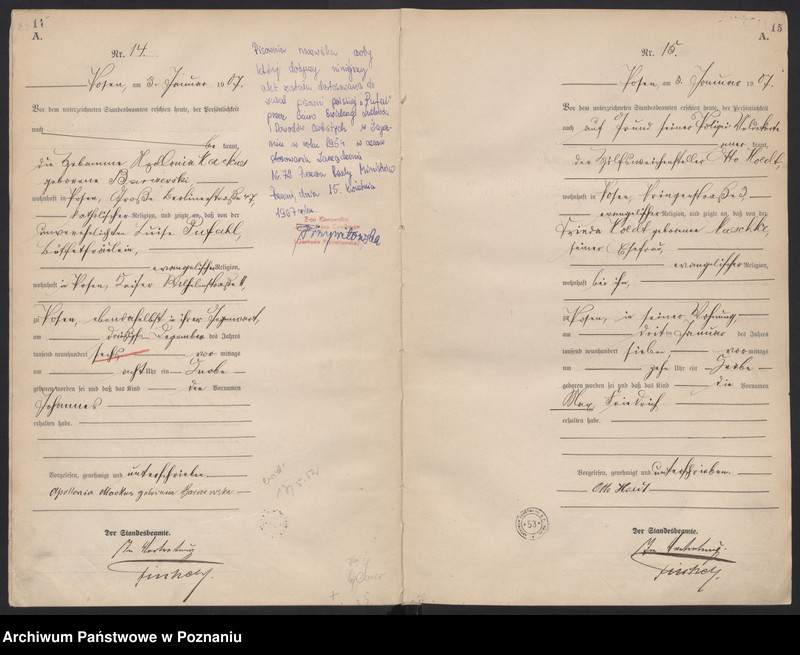 14
A.
Nr. 14.
Posen, am 3. Januar 1907.
Vor dem unterzeichneten Standesbeamten erschien heute, der Persönlichkeit
nach
be kannt,
die Hebamme Apollonia Mackus
geborene Barczewski,
wohnhaft in Posen, Große Berlinerstraße 47,
katholischer Religion, und zeigte an, daß von der
unverehelichten Luise Pufahl,
Büffetfräulein,
evangelischer Religion,
wohnhaft in Posen, Kaiser Wilhelmstraße
zu Posen, ebendaselbst in ihrer Gegenwart,
am Dezember des Jahres
tausend neunhundert sechs vor mittags
um acht Uhr ein Knabe
geboren worden sei und daß das Kind den Vornamen
Johannes
erhalten habe.
Vorgelesen, genehmigt und unterschrieben
Apollonia Mackus geborene Barczewska
Der Standesbeamte.
In Vertretung
Pisownia nazwiska osoby
której dotyczy niniejszy
akt została dostosowana do
zasad pisowni polskiej "Pufal"
przez Biuro Ewidencji Ludności
i Dowodów Osobistych w
w roku 1954 w
stosowania Zarządzenia
Nr. 72 Prezesa Rady Ministrów
Poznań, dnia 15. kwietnia
1967 roku
15
A.
Nr. 15.
Posen, am 3. Januar 1907.
Vor dem unterzeichneten Standesbeamten erschien heute, der Persönlichkeit
nach auf Grund seiner Polizei-Meldekarte
aner kannt,
der Hilfsweichensteller Otto Hoedt,
wohnhaft in Posen, Prinzenstraße 2,
evangelischer Religion, und zeigte an, daß von der
Frieda Hoedt geborene Maschke,
seiner Ehefrau,
evangelischer Religion,
wohnhaft bei ihm,
zu Posen, in seiner Wohnung,
am dritten Januar des Jahres
tausend neunhundert sieben vor mittags
um zehn Uhr ein Knabe
geboren worden sei und daß das Kind die Vornamen
Max Friedrich
erhalten habe.
Vorgelesen, genehmigt und unterschrieben.
Otto Hoedt
Der Standesbeamte.
In Vertretung.
53
Archiwum Państwowe w Poznaniu